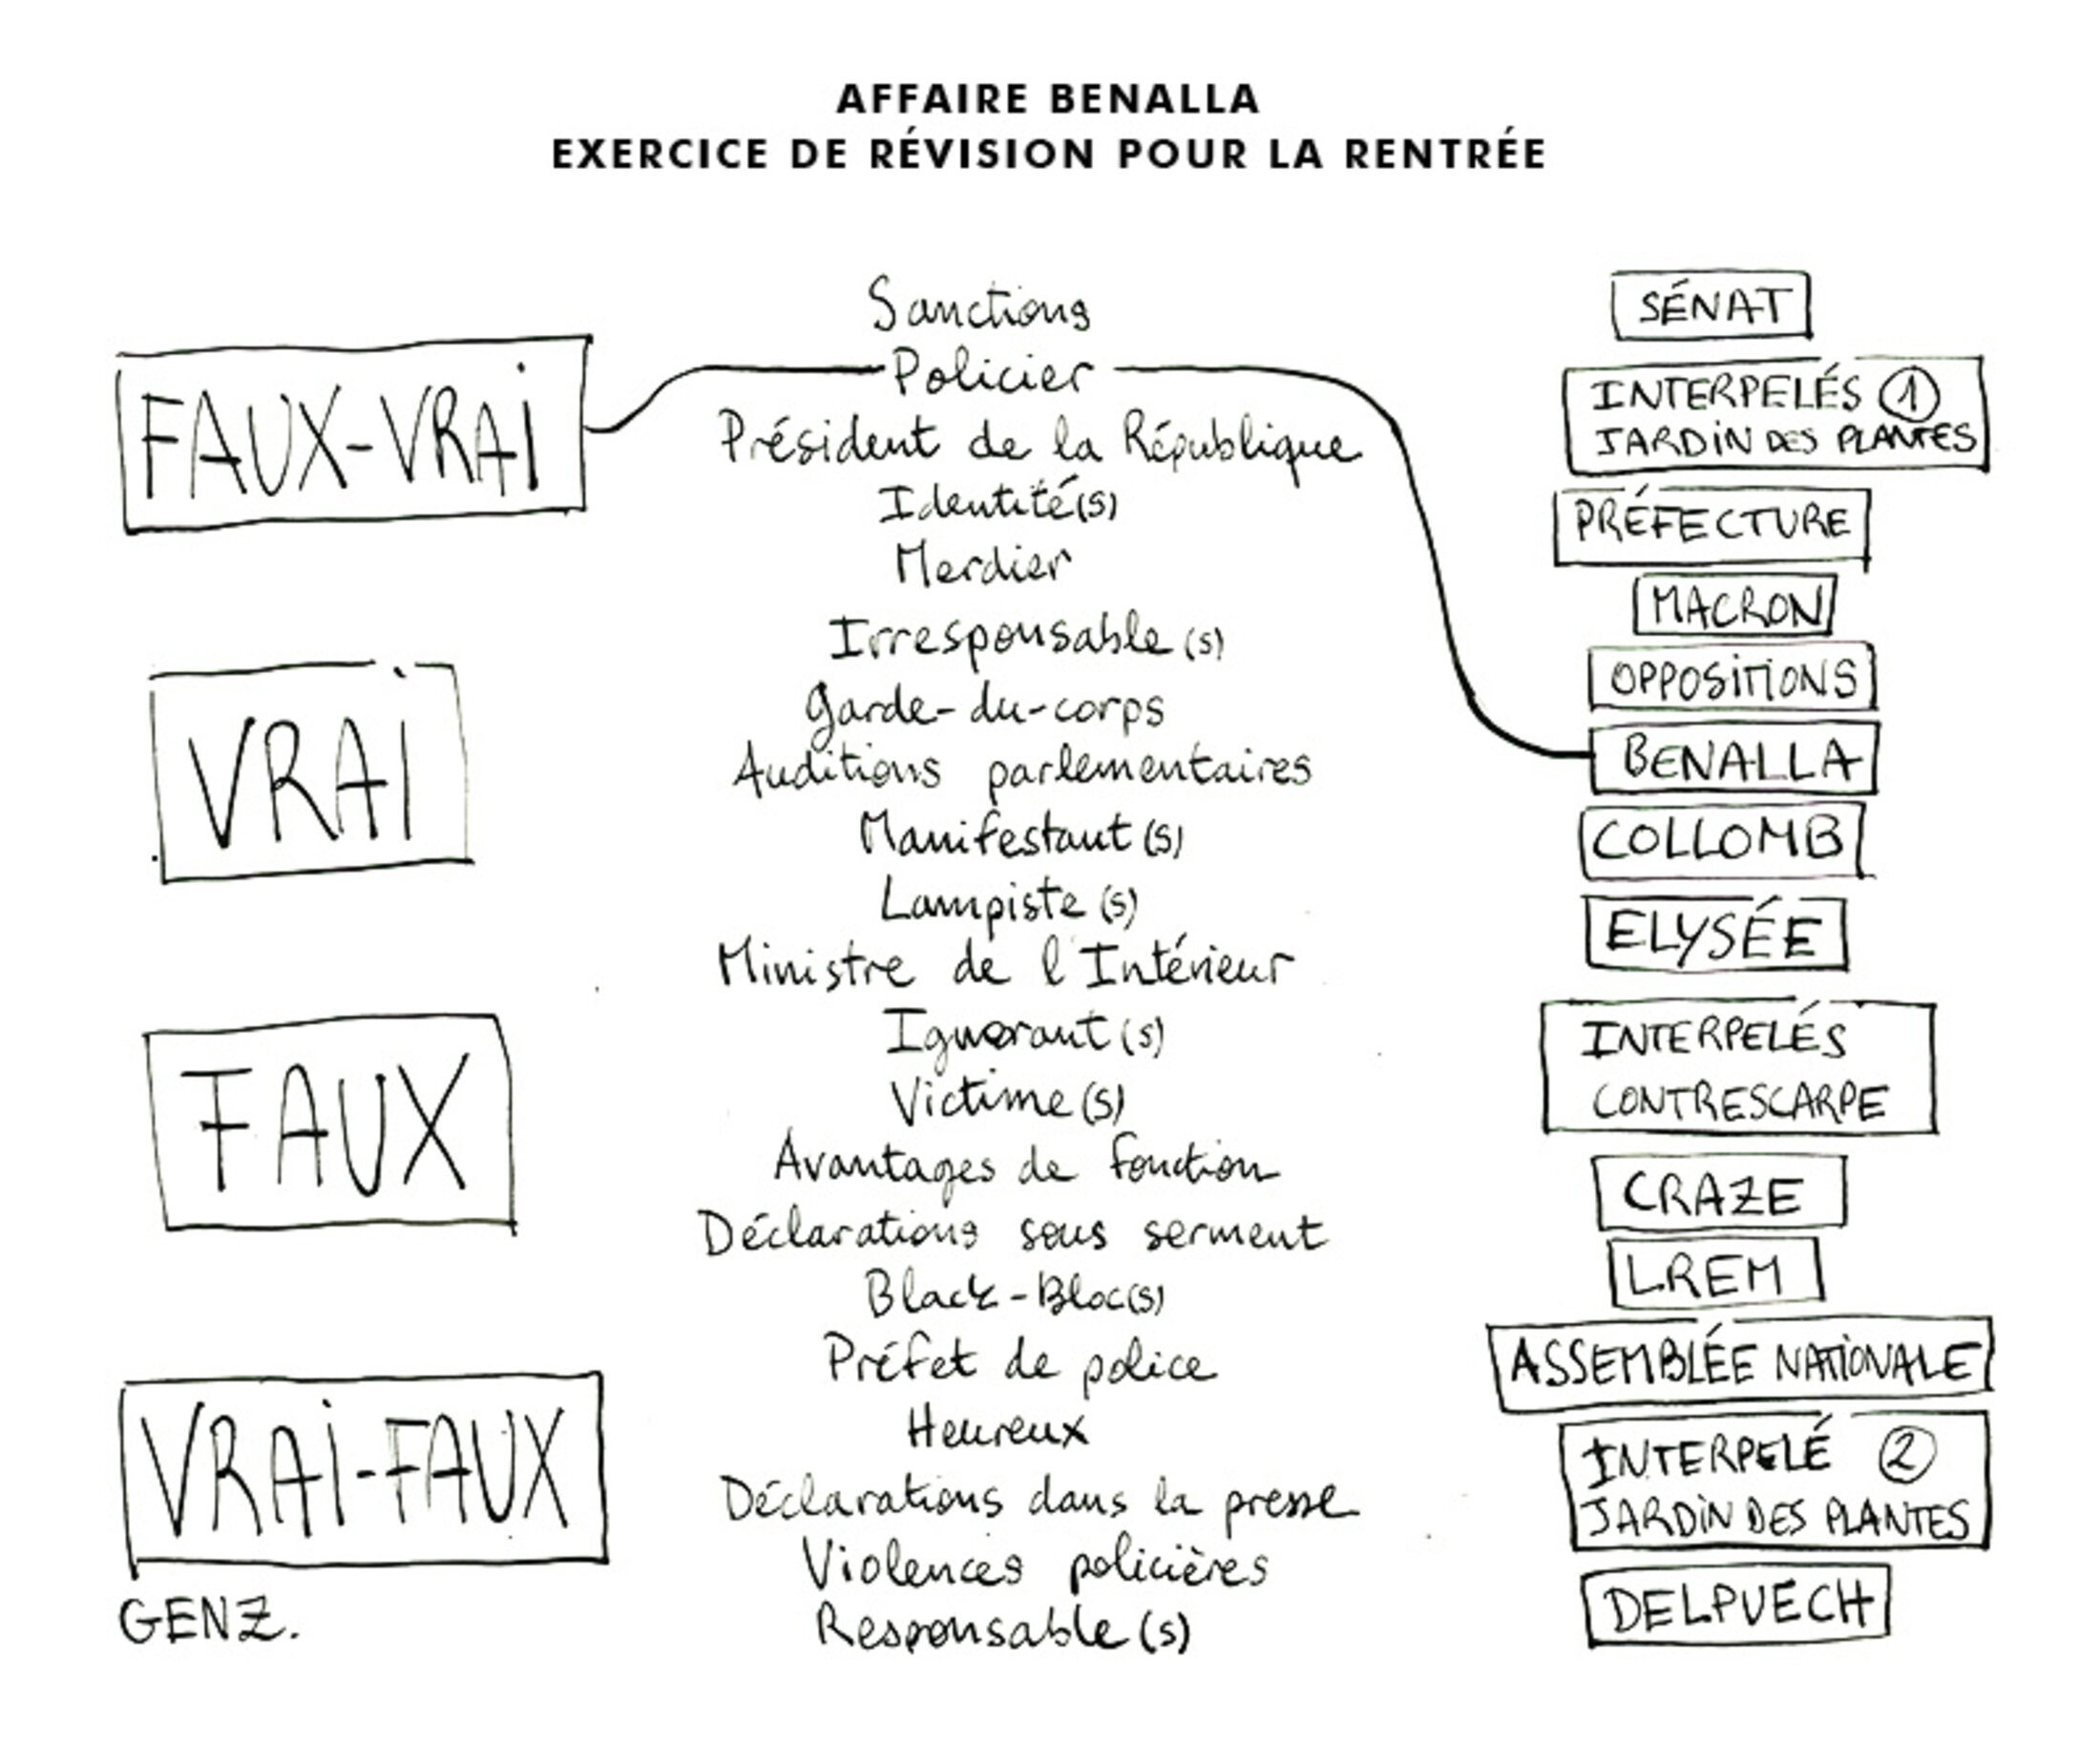 AFFAIRE BENALLA
EXERCICE DE RÉVISION POUR LA RENTRÉE
FAUX-VRAI
VRAI
FAUX
VRAI-FAUX
GENZ.
Sanctions
Policier
Président de la République
Identité(s)
Merdier
Irresponsable(s)
Garde-du-corps
Auditions parlementaires
Manifestant(s)
Lampiste(s)
Ministre de l'Intérieur
Ignorant(s)
Victime(s)
Avantages de fonction
Déclarations sous serment
Black-Bloc(s)
Préfet de police
Heureux
Déclarations dans la presse
Violences policières
Responsable(s)
SÉNAT
INTERPELÉS 1
JARDIN DES PLANTES
PRÉFECTURE
MACRON
OPPOSITIONS
BENALLA
COLLOMB
ELYSÉE
INTERPELÉS
CONTRESCARPE
CRAZE
LREM
ASSEMBLÉE NATIONALE
INTERPELÉ 2
JARDIN DES PLANTES
DELPUECH